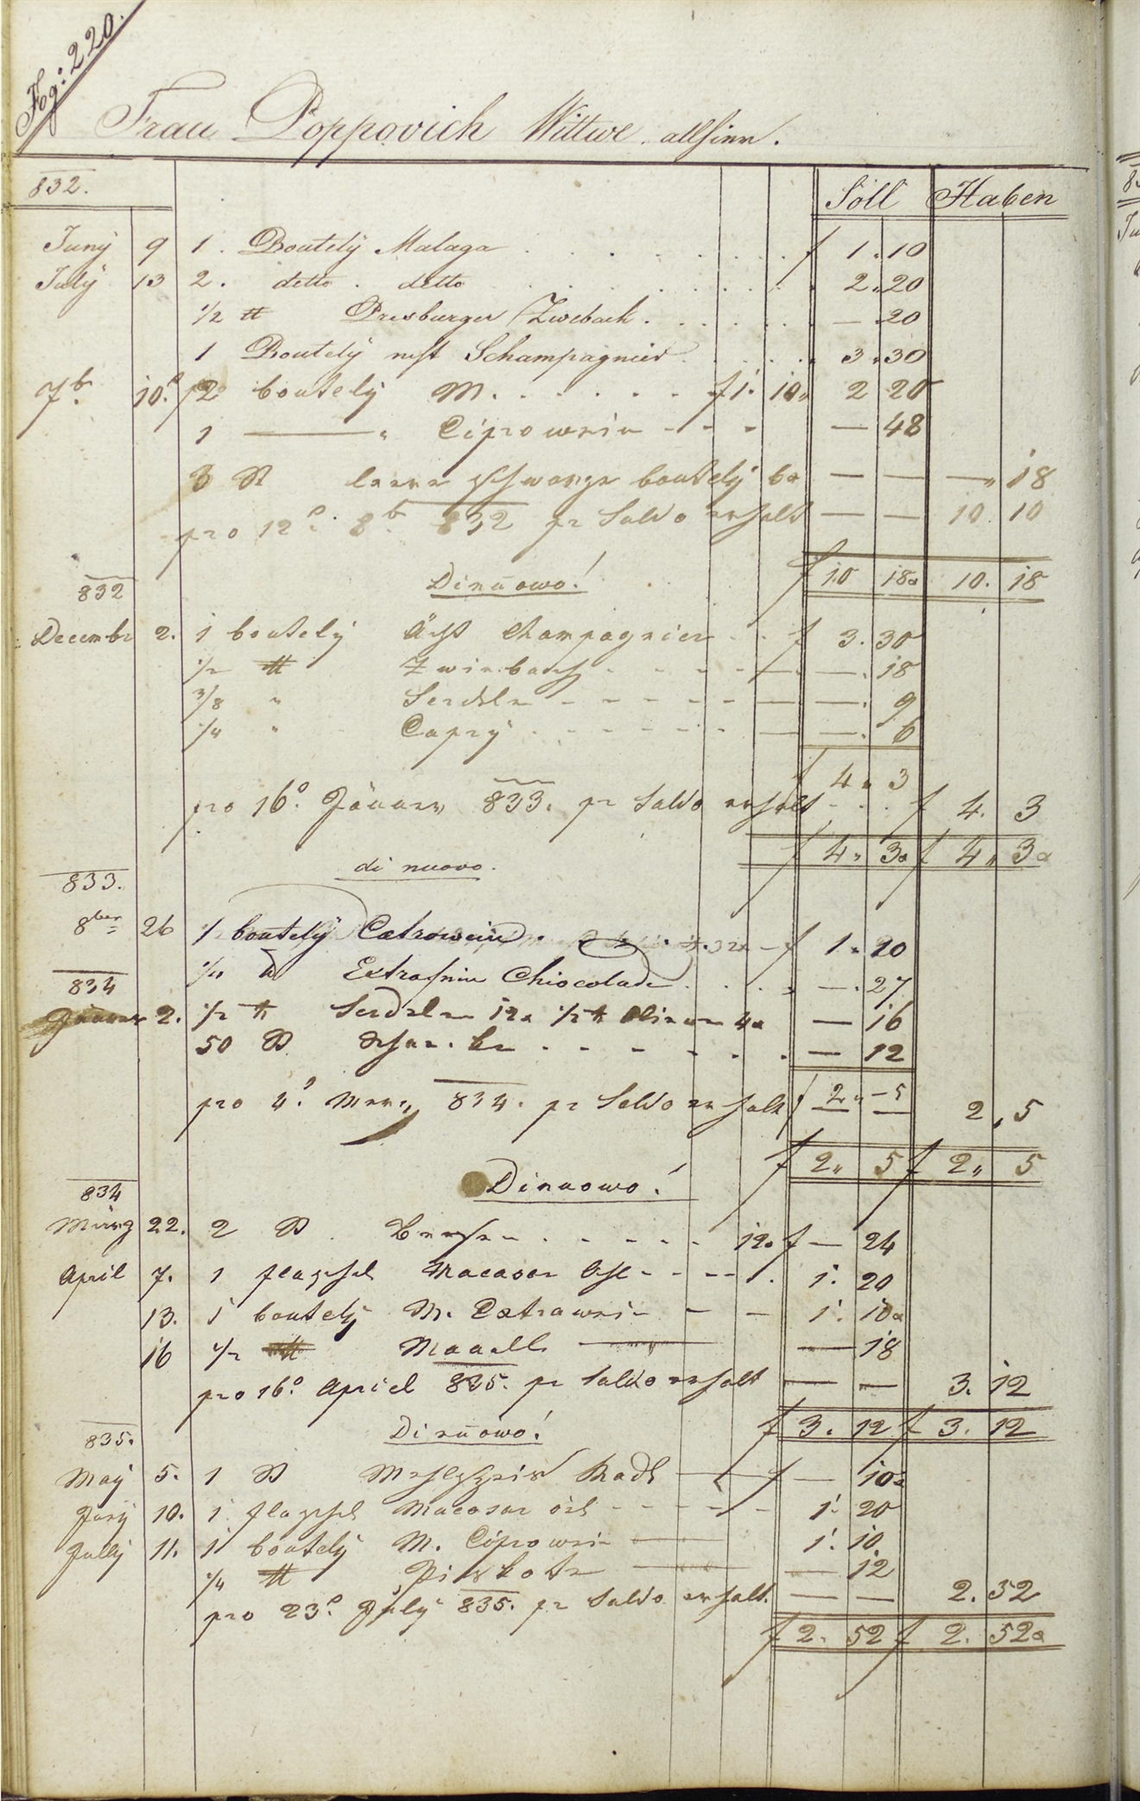 Fog: 220.
Frau Poppovich Wittwe allhier.
832. Soll Haben
Juny 9 1. Boutely Malaga f 1. 10
July 13 2. detto. detto 2. 20
1/2 ℔ Presburger Zwiback. — 20
1 Boutely Schampagnier 3. 30
7b. 10. 2 boutely M. f 1. 10 2 20
1 — Ciprowein — 48
3 St leere schwarze boutely — — — 18
pro 12o. 8b 832 pr Saldo erhalt — — 10. 10
Dinuowo! f 10 18 10. 18
832
Decembr 2. 1 boutely ächt Champagnier f 3. 30
1/2 ℔ Zwieback —. 18
3/8 " Serdeln —. 9
1/4 " Capry —. 6
f 4. 3
pro 16o. Jänner 833. pr Saldo erhalt f 4. 3
f 4. 3 f 4. 3
di nuovo.
833.
8ber 26 1 boutely f 1. 20
Extrafein Chiocolade —. 27
834
Jänner 2. 1/2 ℔ Serdeln 12 1/2 ℔ 4 — 16
50 St — 12
f 2. 5
pro 4o. Merz 834. pr Saldo erhalt 2. 5
f 2. 5 f 2. 5
Dinuowo!
834
März 22. 2 St. 12 f — 24
April 7. 1 flaschel Macasar Öhl 1. 20
13. 1 boutely M. 1. 10
16 1/2 ℔ — 18
pro 16o. Apriel 835. pr Saldo erhalt — — 3. 12
f 3. 12 f 3. 12
835. Dinuowo!
May 5. 1 St f — 10
Juny 10. 1 flaschel Macosar öhl 1. 20
July 11. 1 boutely M. Ciprowein 1. 10.
1/4 ℔ Piskoten — 12
pro 23o. July 835. pr Saldo erhalt. — — 2. 52
f 2. 52 f 2. 52